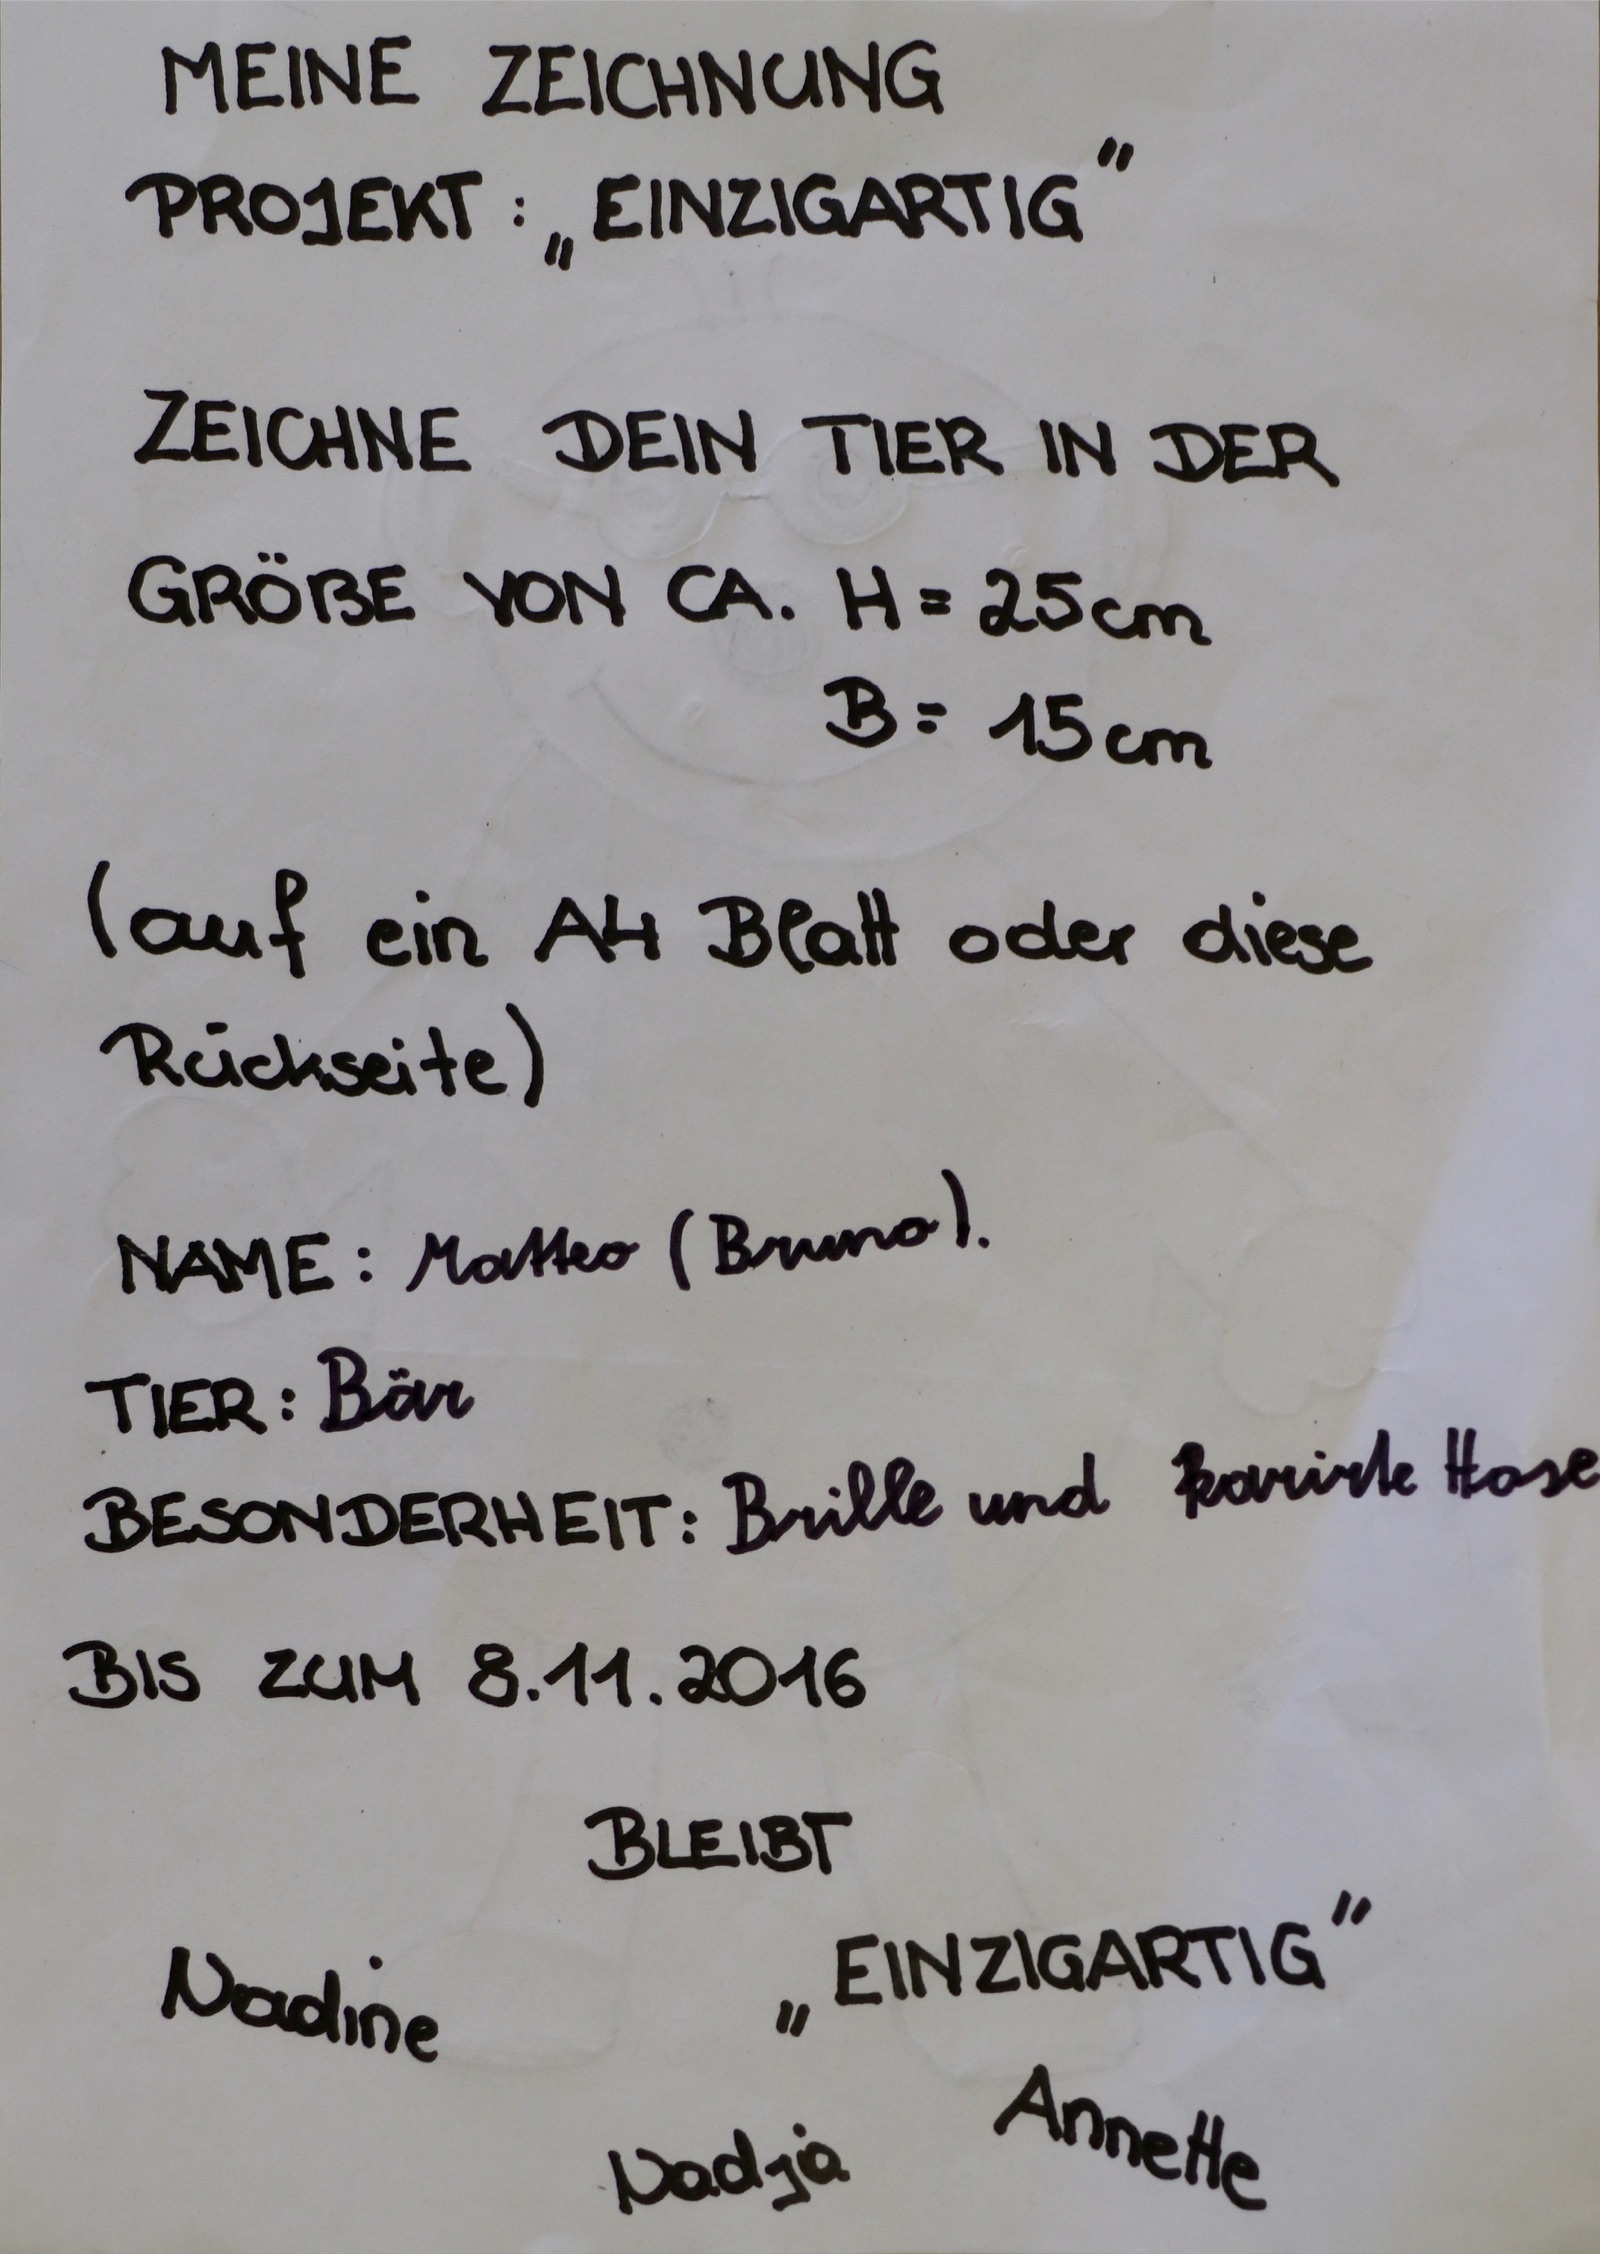 MEINE ZEICHNUNG
PROJEKT: „EINZIGARTIG“
ZEICHNE DEIN TIER IN DER
GRÖßE VON CA. H = 25cm
B = 15cm
(auf ein A4 Blatt oder diese
Rückseite)
NAME: Matteo (Bruno).
TIER: Bär
BESONDERHEIT: Brille und karirte Hose
BIS ZUM 8.11.2016
BLEIBT
„EINZIGARTIG“
Nadine
Annette
Nadja